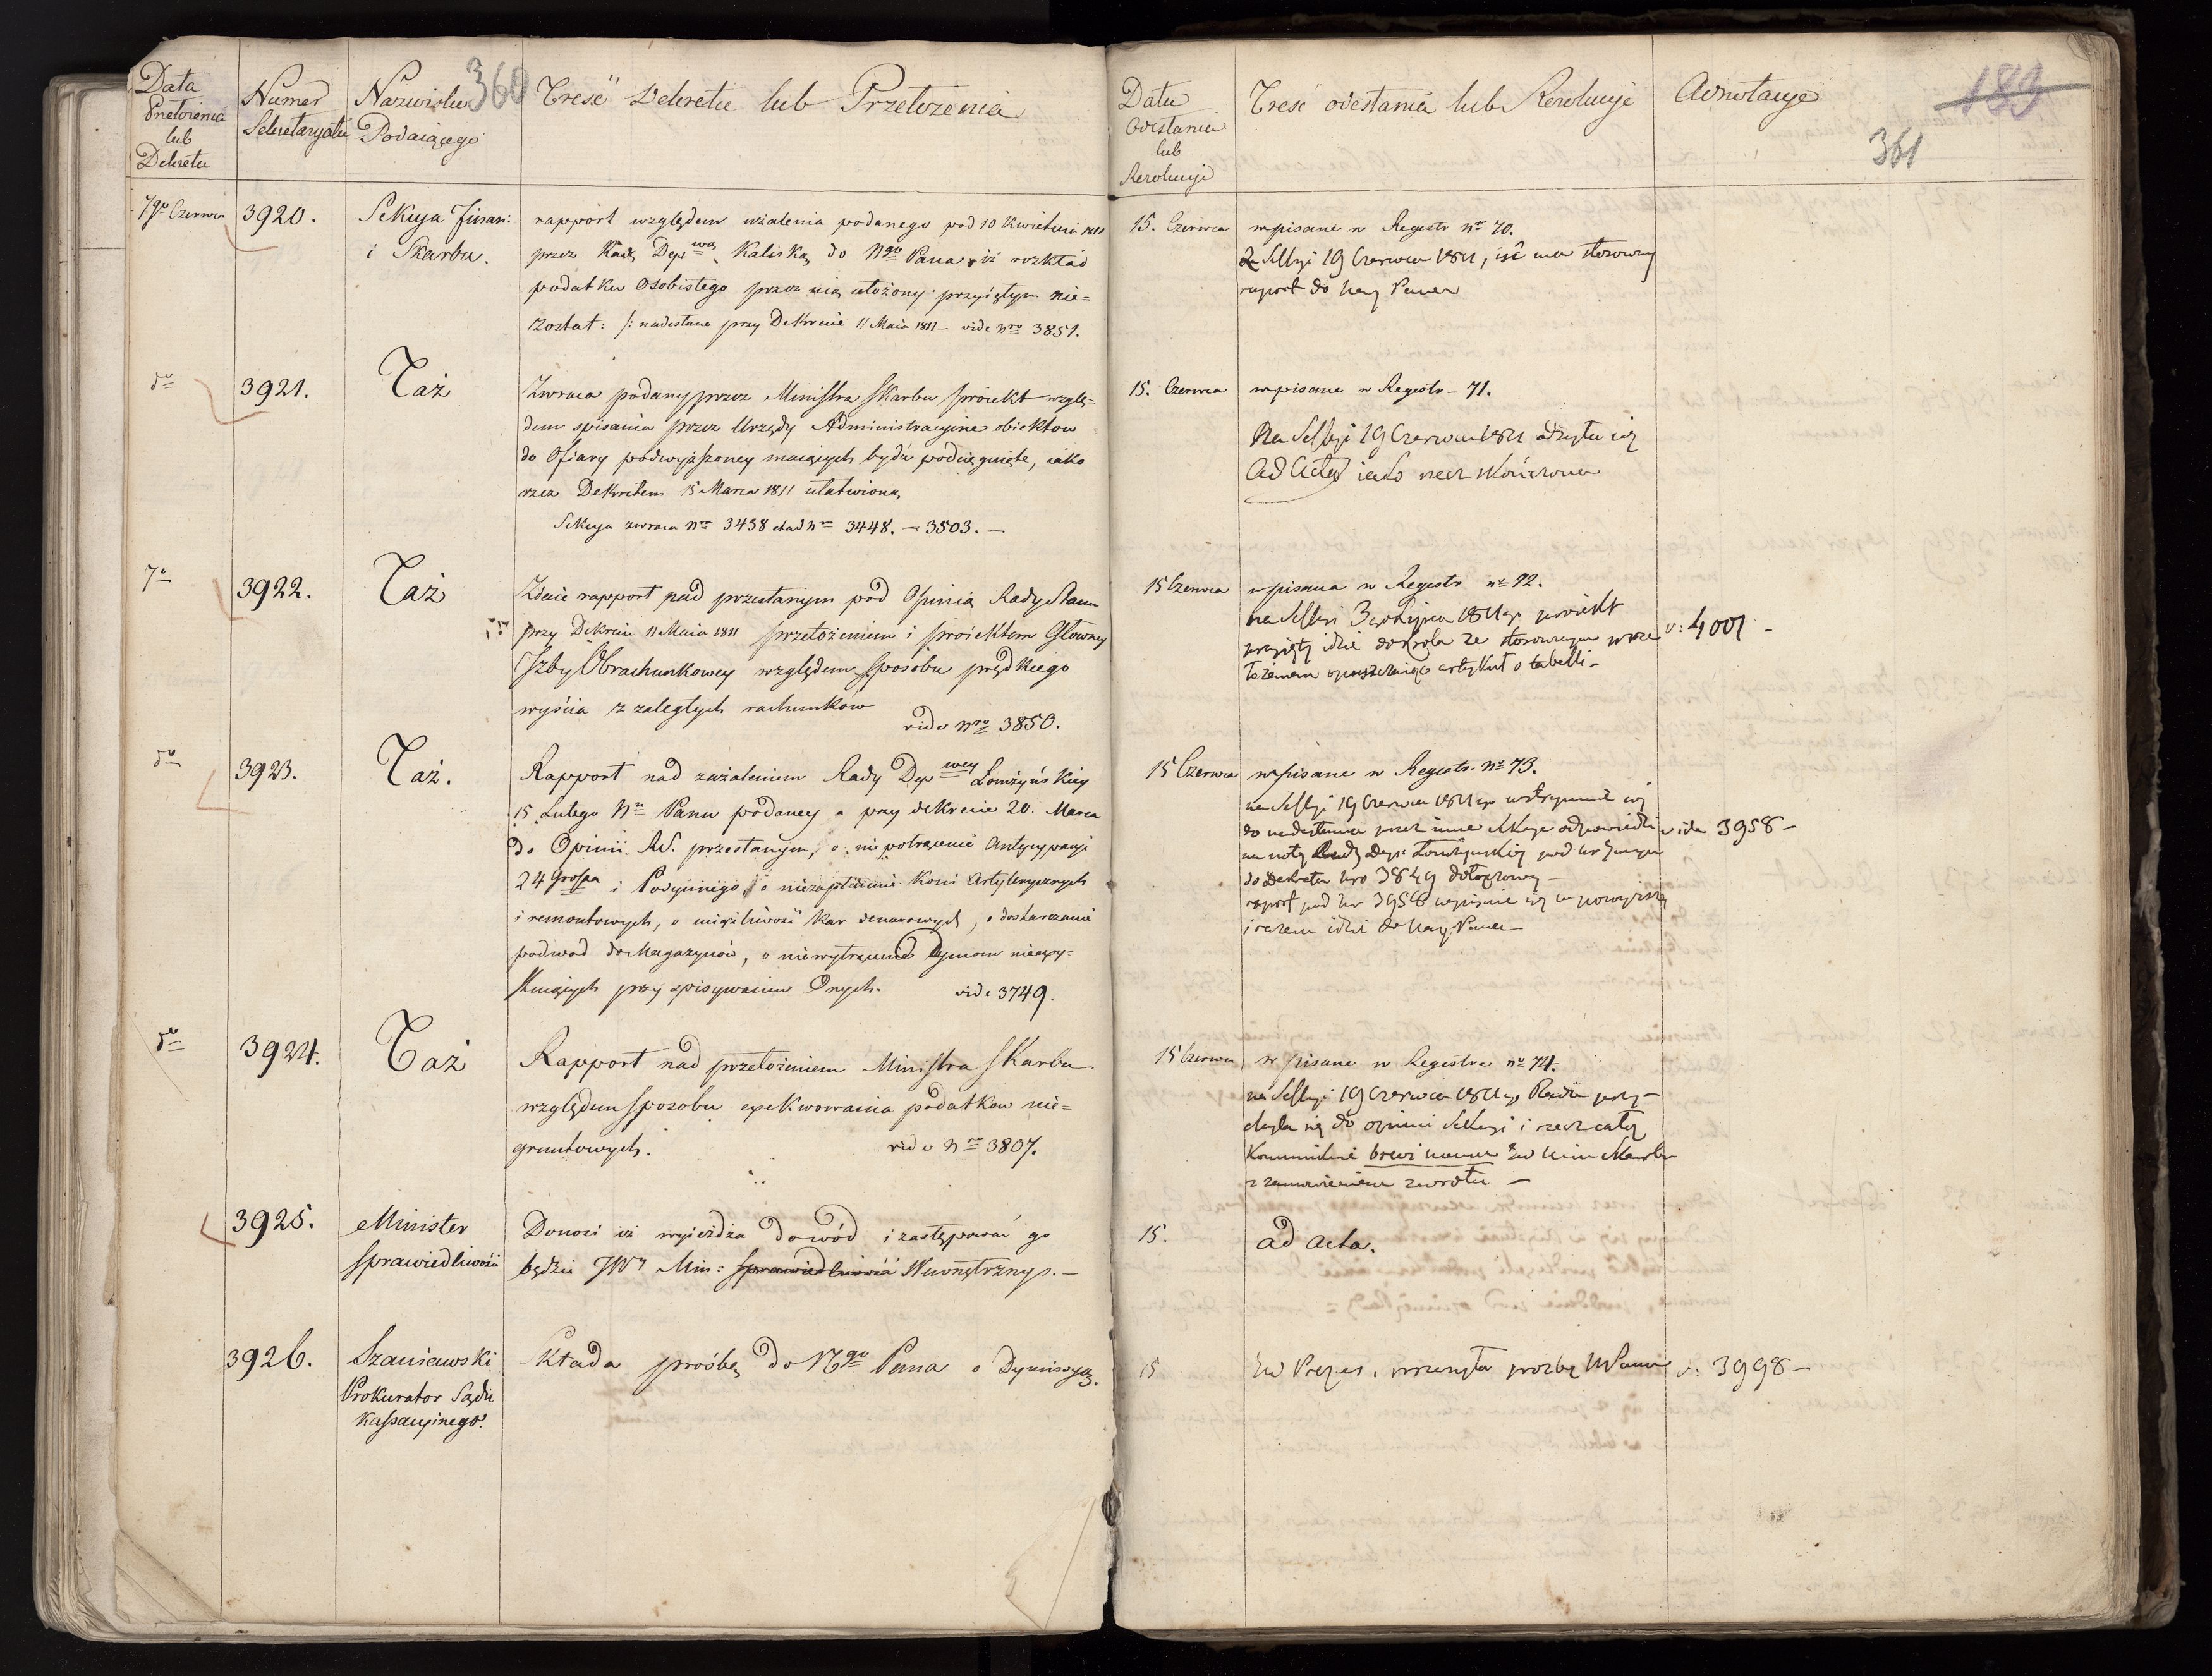 Data
Przełożenia
lub
Dekretu
Numer
Sekretaryatu
Nazwisko
Podaiącego
360
Treść Dekretu lub Przełożenia
Data
Odesłania
lub
Rezolucyi
Treść odesłania lub Rezolucyi
Adnotacye
183
361
7go Czerwca
3920.
Sekcya Finan:
i Skarbu.
rapport względem użalenia podanego pod 10 Kwietnia 1811
przez Radę Depwą Kaliską do Ngo Pana, iż rozkład
podatku Osobistego przez nią ułożony przyiętym nie=
został: /: nadesłane przy Dekrecie 11 Maia 1811 – vide nro 3851.
15. Czerwca
wpisane w Regestr No 70.
Sessyi 19 Czerwca 1811, iść ma stosowny
raport do Nay Pana
do
3921.
Taż
Zwraca podany przez Ministra Skarbu proiekt wzglę=
dem spisania przez Urzędy Administracyine obiektow
do Ofiary podwyższoney maiących bydź podciągnięte, iako
rzecz Dekretem 15 Marca 1811 ułatwioną
Sekcya zwraca No 3438 No 3448. – 3503. –
15. Czerwca
wpisane w Regestr – 71.
Na Sessyi 19 Czerwca 1811 odsyła się
Ad Acta iako rzecz skończona
7o
3922.
Taż
Zdaie rapport nad przesłanym pod Opinią Rady Stanu
przy Dekrecie 11 Maia 1811 przełożeniem i proiektem Głowney
Izby Obrachunkowey względem sposobu prędkiego
wyścia z zaległych rachunków
vide Nro 3850.
15 Czerwca
wpisana w Regestr no 72.
na Sessyi 3 Lipca 1811 proiekt
przyięty idzie do Krola ze stosownym prze
łożeniem artykuł o tabelli –
v: 4001 –
do
3923.
Taż.
Rapport nad zażaleniem Rady Depwey Łomżyńskiey
15 Lutego No Panu podaney a przy dekrecie 20. Marca
do Opinii R.S. przesłanym, o niepotrącenie Antycypacyi
24 Grosza i Podymnego, o niezapłacenie Koni Artylerycznych
i remontowych, o uciążliwość kar , o dostarczanie
podwod do Magazynów, o niewytrącenie Dymow nieexy=
stuiących przy spisywaniu Onych.
vide 3749.
15 Czerwca
wpisane w Regestr. No 73.
na Sessyi 19 Czerwca 1811 wstrzymuie się
do nadesłania przez inne Sekcye odpowiedzi
na notę Rady Dep: Łomżyńskiey pod
do Dekretu Nro 3849 dołączoney –
raport pod Nr 3958 wpisuie się w powyższy
i razem idzie do Nay: Pana
vide 3958 –
do
3924.
Taż
Rapport nad przełożeniem Ministra Skarbu
względem sposobu exekwowania podatkow nie=
gruntowych.
vide Nro 3807.
15 Czerwca
wpisane w Regestra no 74.
na Sessyi 19 Czerwca 1811 Rada przy–
chyla się do opinii Sekcyi i rzecz całą
Kommunikuie brevi manu JW Min Skarbu
z zamowieniem zwrotu –
3925.
Minister
Sprawiedliwości
Donosi iż wyieżdża do wód i zastępować go
będzie JW Min: Sprawiedliwości Wewnętrznych. –
15.
ad acta.
3926.
Szaniawski
Prokurator Sądu
Kassacyinego.
Składa prośbę do Ngo Pana o Dymissyą.
15
JW Prezes przesyła prozbę NPanu
v. 3998 –